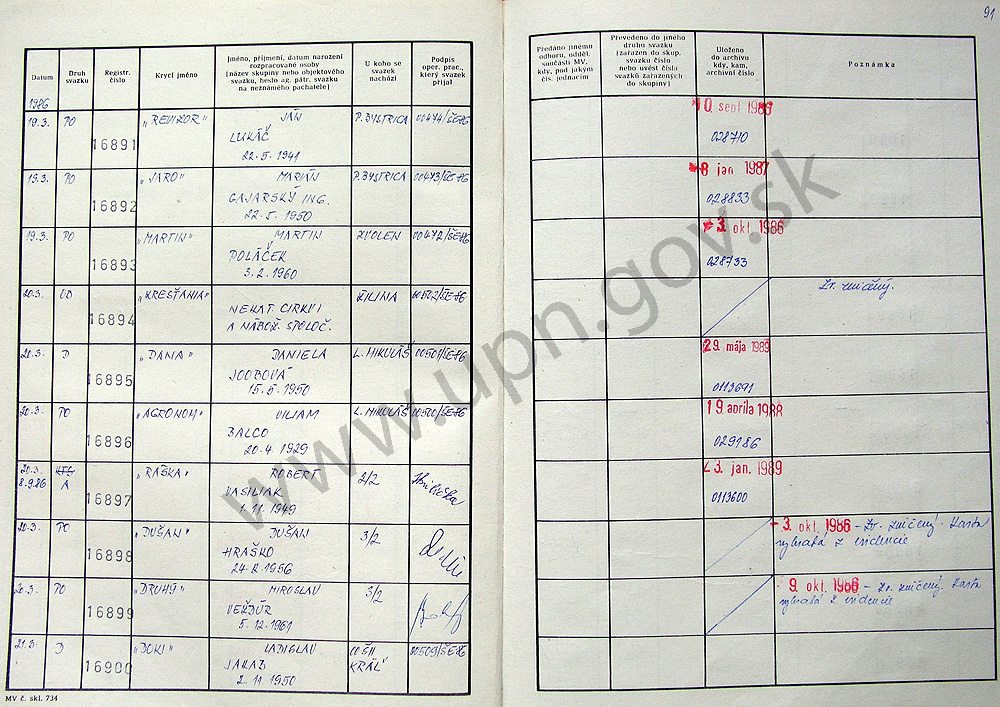 91
Datum
Druh svazku
Registr. číslo
Krycí jméno
Jméno, příjmení, datum narození
rozpracované osoby
[název skupiny nebo objektového
svazku, heslo ag. pátr. svazku
na neznámého pachatele]
U koho se
svazek
nachází
Podpis
oper. prac.,
který svazek
přijal
Předáno jinému
odboru, odděl.
součásti MV,
kdy, pod jakým
čís. jednacím
Převedeno do jiného
druhu svazku
[zařazen do skup.
svazku číslo
nebo uvést čísla
svazků zařazených
do skupiny]
Uloženo
do archivu
kdy, kam,
archivní číslo
Poznámka
1986
19.3. PO 16891 "REVIZOR" JÁN P. BYSTRICA 00474/ŠE-86 10 sept 1986
LUKÁČ 028710
22.5.1941
19.3. PO 16892 "JARO" MARIÁN P. BYSTRICA 00473/ŠE-86 8 jan 1987
GAJARSKÝ ING. 028833
22.5.1950
19.3. PO 16893 "MARTIN" MARTIN ZVOLEN 00472/ŠE-86 3. okt. 1986
POLÁČEK 028733
3.2.1960
20.3. 16894 "KRESŤANIA" ŽILINA 00502/ŠE-86 Zv. zničený.
NEKAT. CIRKVI
A NÁBOŽ. SPOLOČ.
20.3. D 16895 "DANA" DANIELA L. MIKULÁŠ 00501/ŠE-86 29. mája 1989
0113691
15.5.1950
20.3. PO 16896 "AGRONOM" VILIAM L. MIKULÁŠ 00500/ŠE-86 19 apríla 1988
BALCO 029186
20.4.1929
20.3. 16897 "RAŠKA" ROBERT 2/2 23. jan. 1989
8.9.86 A VASILIAK 0113600
1.11.1949
20.3. PO 16898 "DUŠAN" DUŠAN 3/2 3. okt. 1986 - Zv. zničený. Karta
HRAŠKO vybratá z evidencie
24.2.1956
20.3. PO 16899 "DRUHÝ" MIROSLAV 3/2 9. okt. 1986 - Zv. zničený. Karta
vybratá z evidencie
5.12.1961
21.3. D 16900 LADISLAV 00509/ŠE-86
KRÁĽ
2.11.1950
MV č. skl. 734
www.upn.gov.sk